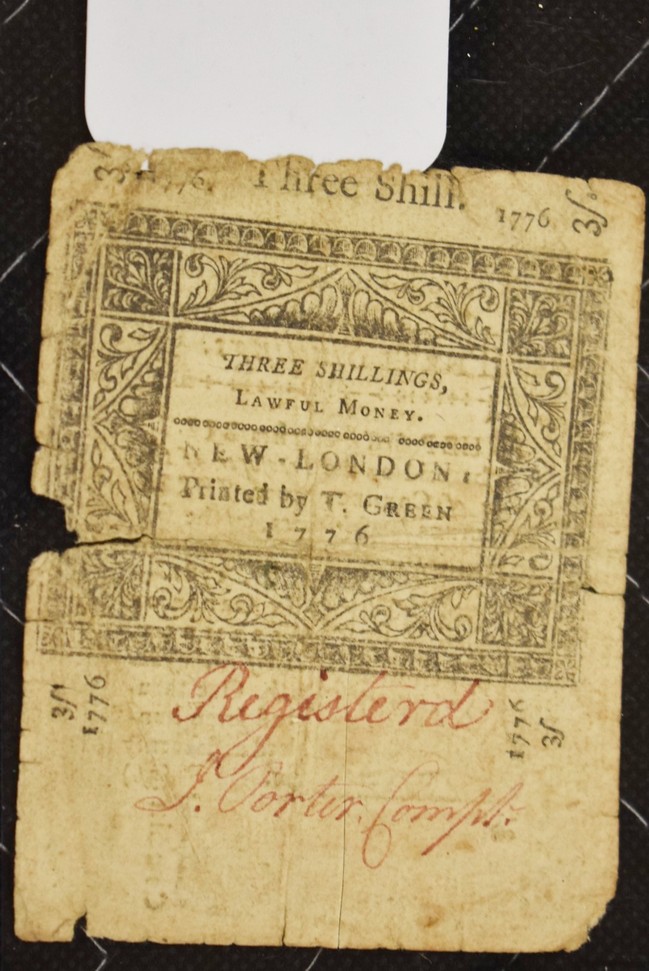 3/ 1776. Three Shill. 1776 3/.
THREE SHILLINGS,
LAWFUL MONEY.
NEW-LONDON:
Printed by T. GREEN
1776
3/ 1776
1776 3/
Registerd
J. Porter. Compt.